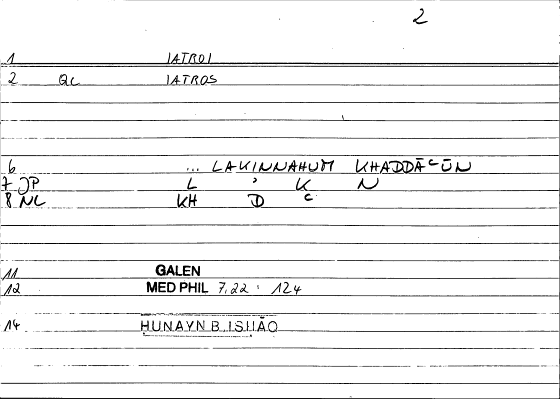 2
1 IATROI
2 QC IATROS
6 ... LAKINNAHUM KHADDĀᶜŪN
7 JP L ' K N
8 NL KH D ᶜ
11 GALEN
12 MED PHIL 7,22 : 124
14 HUNAYN B. ISHĀQ